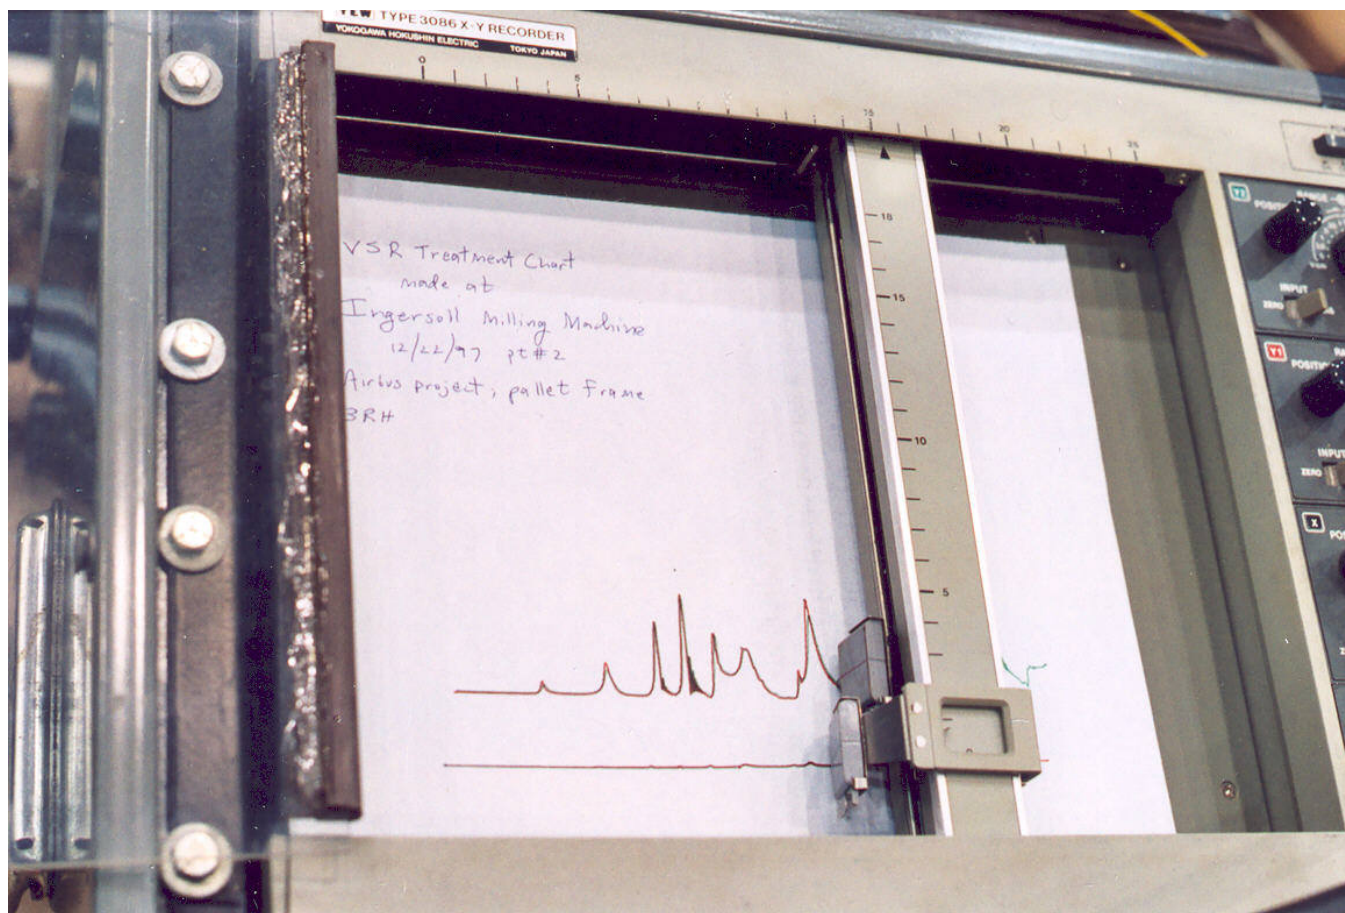 YEW TYPE 3086 X-Y RECORDER
YOKOGAWA HOKUSHIN ELECTRIC TOKYO JAPAN
0 5 15 20 25
18
15
10
5
VSR Treatment Chart
made at
Ingersoll Milling Machine
12/22/97 pt #2
Airbus project, pallet frame
BRH
Y2
RANGE
INPUT
ZERO
Y1
INPUT
ZERO
X